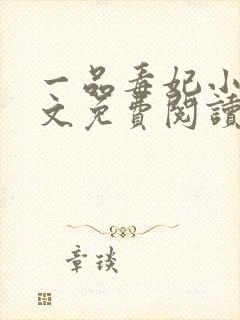 一品毒妃小
文免費閱讀
章琰